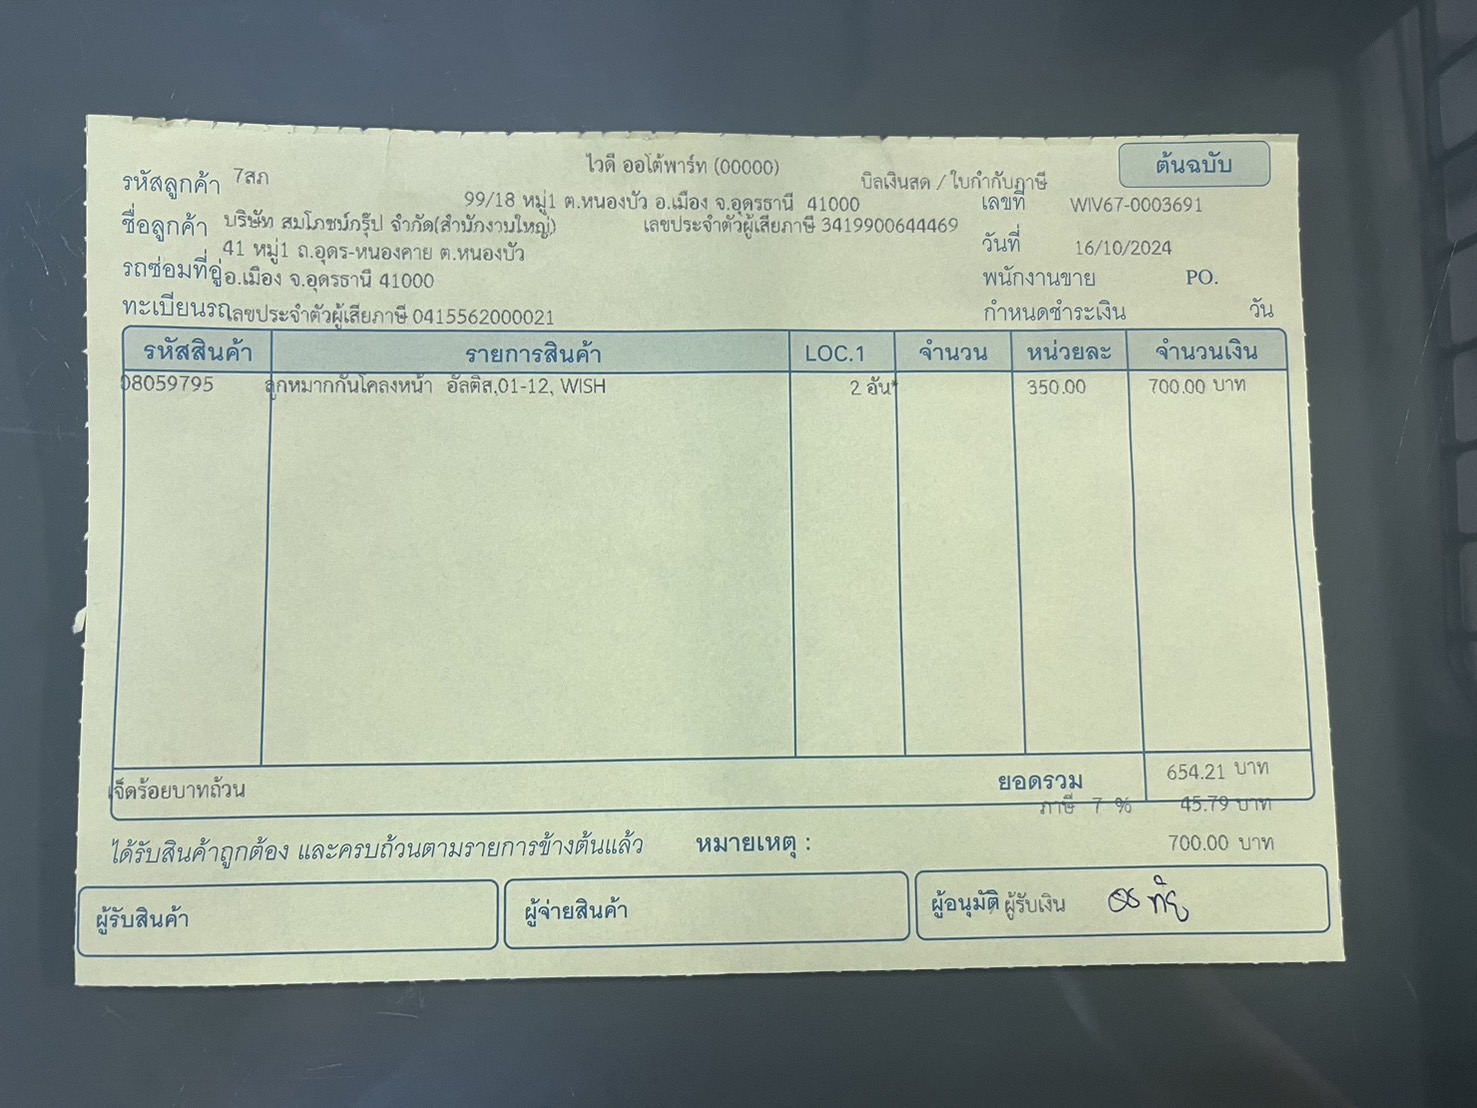 ไวดี ออโต้พาร์ท (00000)
ต้นฉบับ
รหัสลูกค้า 7สภ
บิลเงินสด / ใบกำกับภาษี
99/18 หมู่1 ต.หนองบัว อ.เมือง จ.อุดรธานี 41000
เลขที่ WIV67-0003691
ชื่อลูกค้า บริษัท สมโภชน์กรุ๊ป จำกัด(สำนักงานใหญ่)
เลขประจำตัวผู้เสียภาษี 3419900644469
41 หมู่1 ถ.อุดร-หนองคาย ต.หนองบัว
วันที่ 16/10/2024
รถซ่อมที่อู่ อ.เมือง จ.อุดรธานี 41000
พนักงานขาย PO.
ทะเบียนรถ เลขประจำตัวผู้เสียภาษี 0415562000021
กำหนดชำระเงิน วัน
รหัสสินค้า รายการสินค้า LOC.1 จำนวน หน่วยละ จำนวนเงิน
08059795 ลูกหมากกันโคลงหน้า อัลติส,01-12, WISH 2 อัน* 350.00 700.00 บาท
เจ็ดร้อยบาทถ้วน ยอดรวม 654.21 บาท
ภาษี 7 % 45.79 บาท
ได้รับสินค้าถูกต้อง และครบถ้วนตามรายการข้างต้นแล้ว หมายเหตุ : 700.00 บาท
ผู้รับสินค้า ผู้จ่ายสินค้า ผู้อนุมัติ ผู้รับเงิน